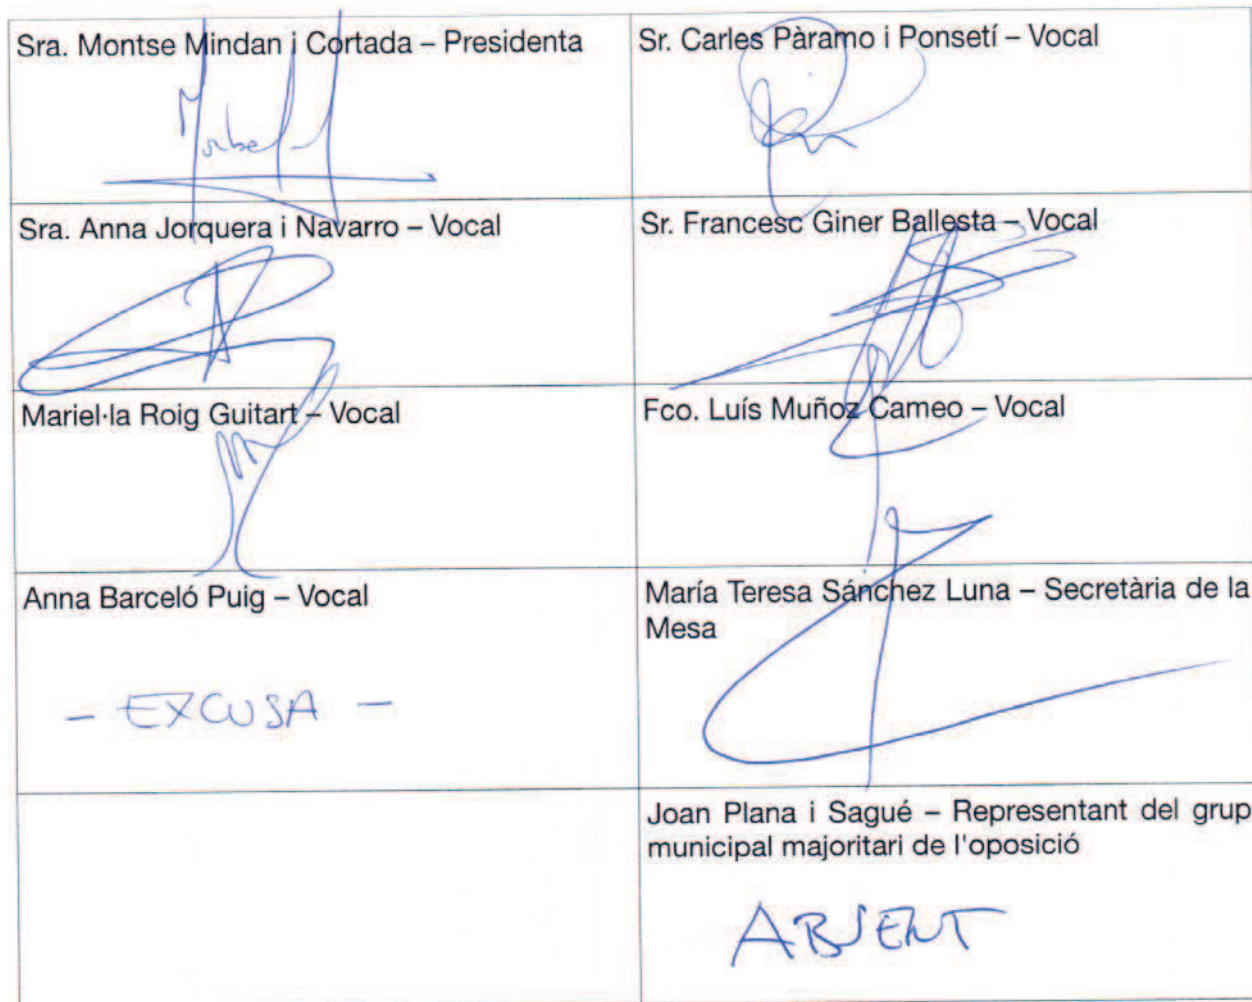 Sra. Montse Mindan i Cortada – Presidenta
Sr. Carles Pàramo i Ponsetí – Vocal
Sra. Anna Jorquera i Navarro – Vocal
Sr. Francesc Giner Ballesta – Vocal
Mariel·la Roig Guitart – Vocal
Fco. Luís Muñoz Cameo – Vocal
Anna Barceló Puig – Vocal
– EXCUSA –
María Teresa Sánchez Luna – Secretària de la
Mesa
Joan Plana i Sagué – Representant del grup
municipal majoritari de l'oposició
ABSENT